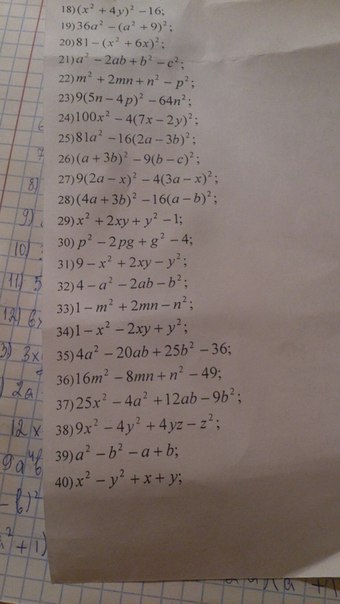 18)(x² + 4y)² −16;
19)36a² − (a² + 9)²;
20)81 − (x² + 6x)²;
21)a² − 2ab + b² − c²;
22)m² + 2mn + n² − p²;
23)9(5n − 4p)² − 64n²;
24)100x² − 4(7x − 2y)²;
25)81a² −16(2a − 3b)²;
26)(a + 3b)² − 9(b − c)²;
27)9(2a − x)² − 4(3a − x)²;
28)(4a + 3b)² −16(a − b)²;
29)x² + 2xy + y² −1;
30)p² − 2pg + g² − 4;
31)9 − x² + 2xy − y²;
32)4 − a² − 2ab − b²;
33)1 − m² + 2mn − n²;
34)1 − x² − 2xy + y²;
35)4a² − 20ab + 25b² − 36;
36)16m² − 8mn + n² − 49;
37)25x² − 4a² + 12ab − 9b²;
38)9x² − 4y² + 4yz − z²;
39)a² − b² − a + b;
40)x² − y² + x + y;
8)
9)
10)
11) 5
12) 6
3) 3x
) 2a
12x
9a⁴b
− b)²
a² + 1)